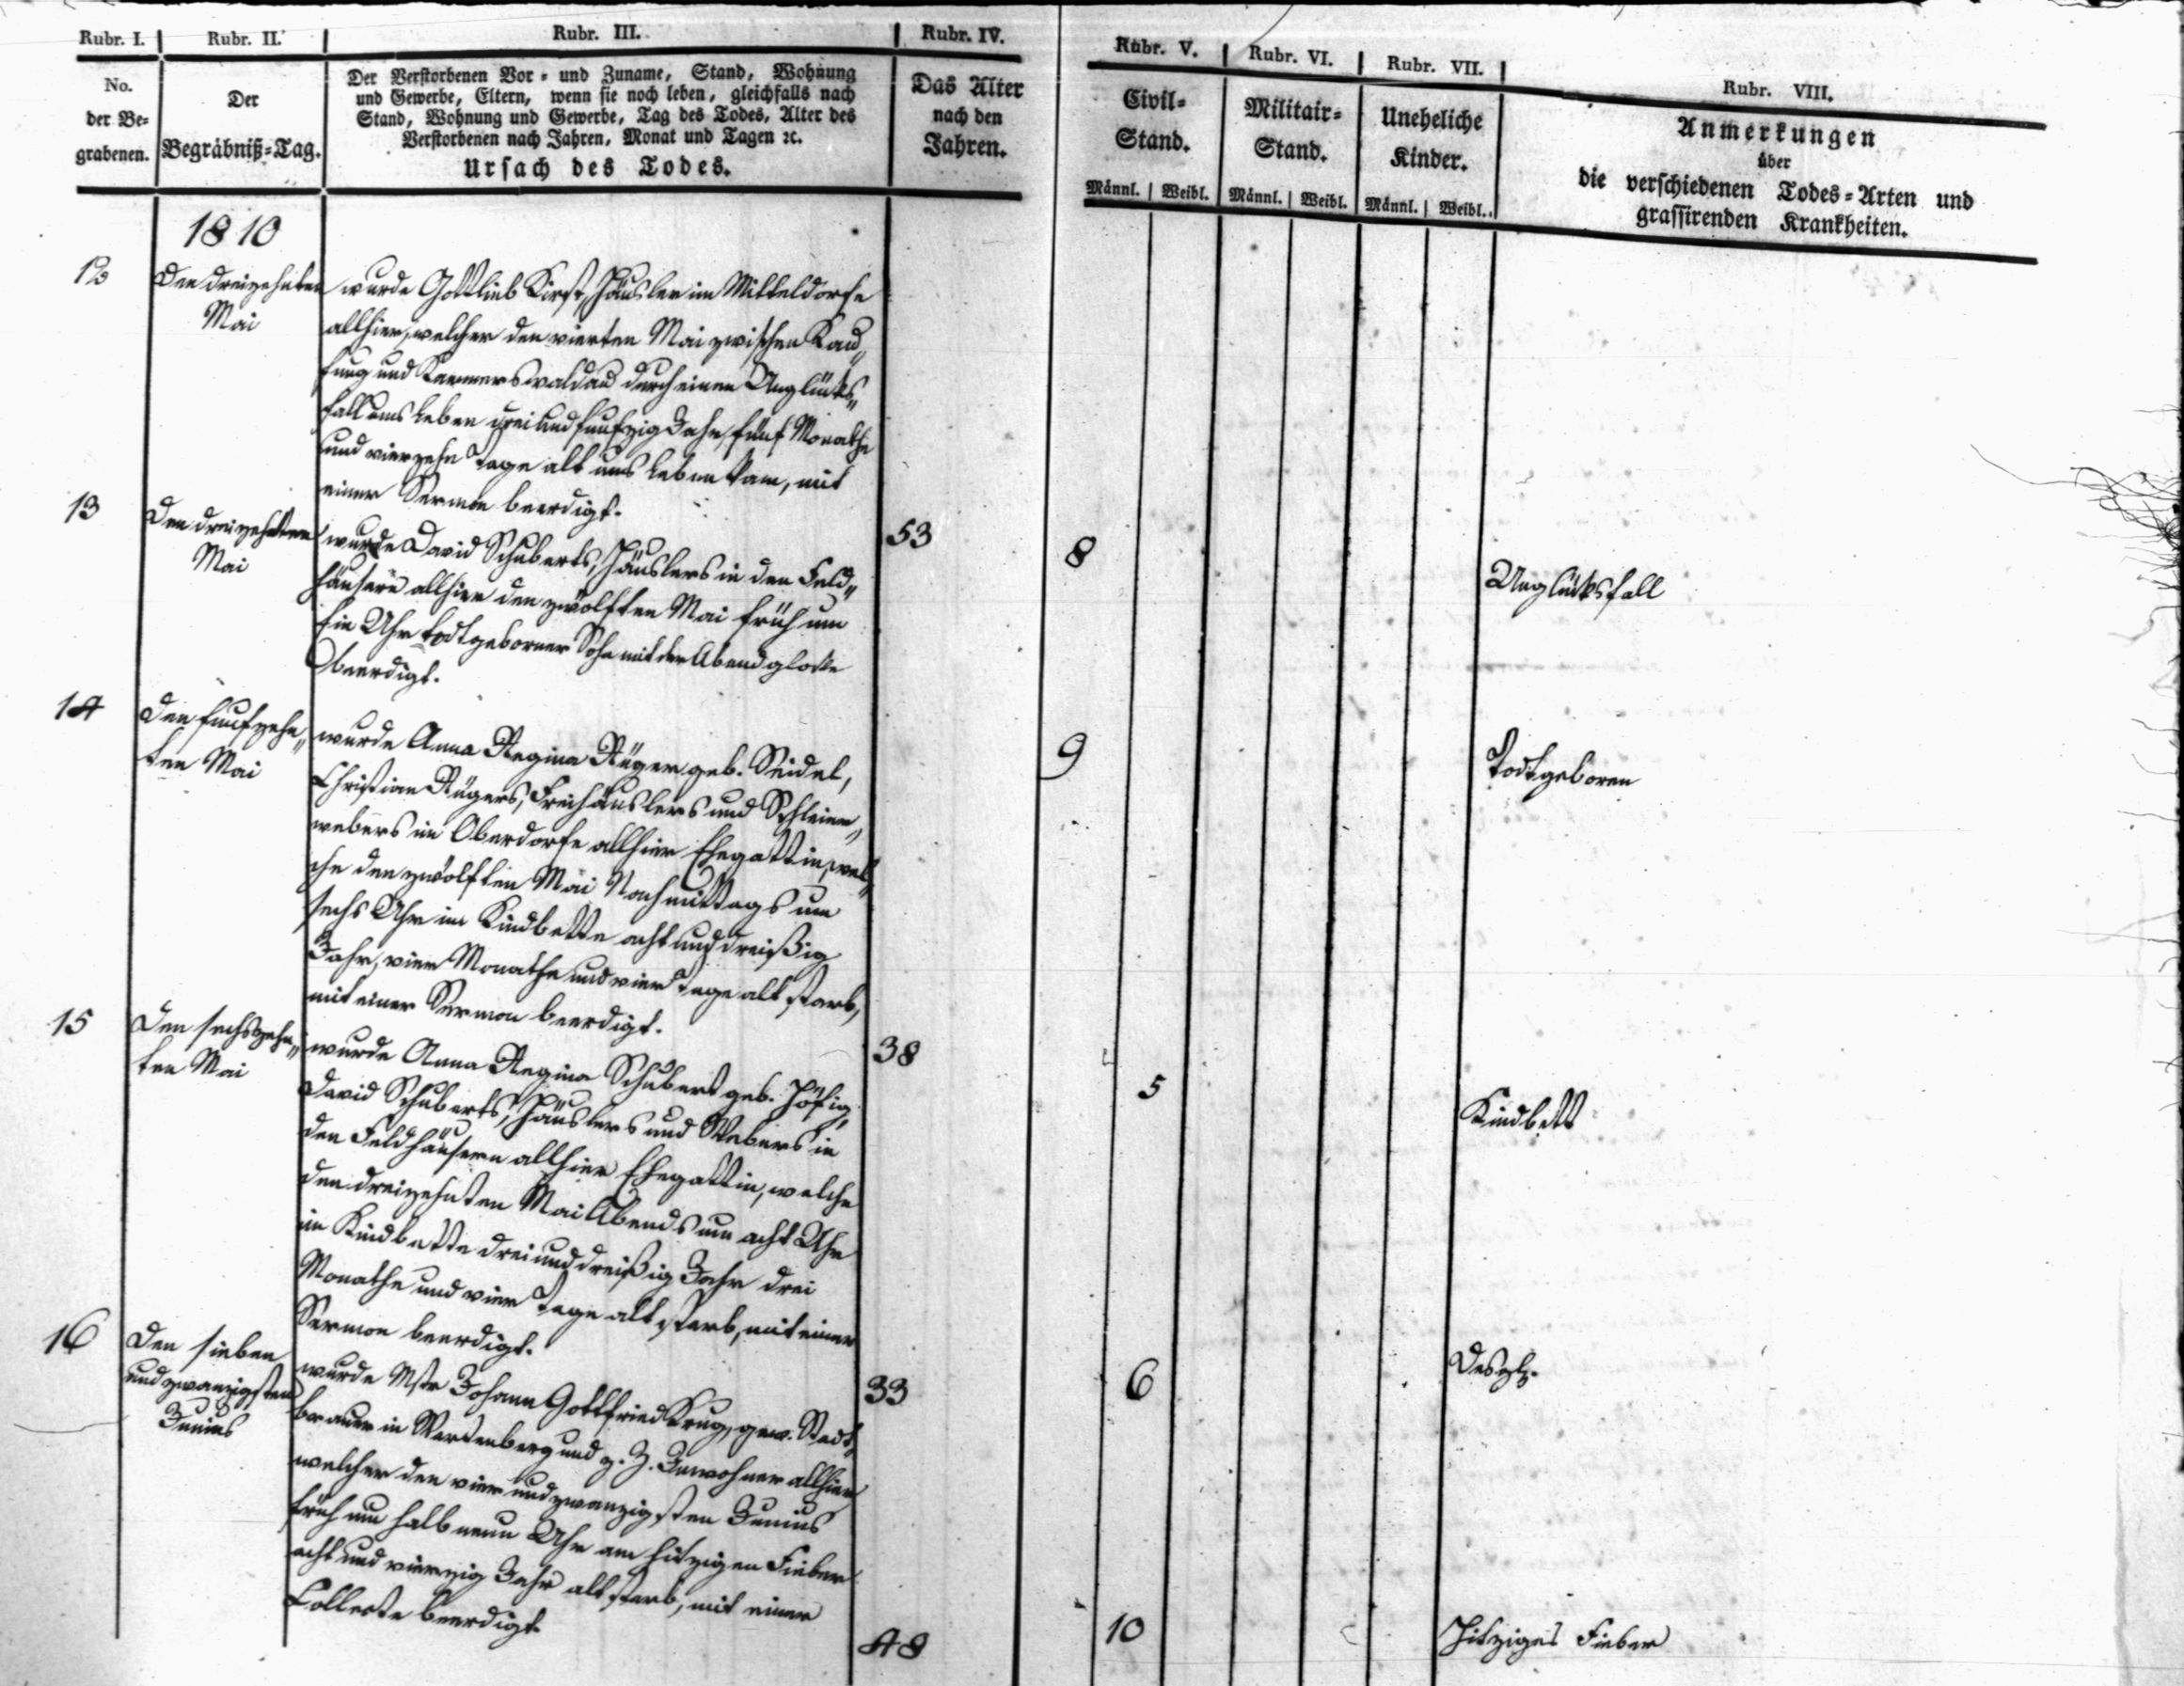 Rubr. I.
Rubr. II.
Rubr. III.
Rubr. IV.
Rubr. V.
Rubr. VI.
Rubr. VII.
Rubr. VIII.
No.
der Be=
grabenen.
Der
Begräbniß=Tag.
Der Verstorbenen Vor= und Zuname, Stand, Wohnung
und Gewerbe, Eltern, wenn sie noch leben, gleichfalls nach
Stand, Wohnung und Gewerbe, Tag des Todes, Alter des
Verstorbenen nach Jahren, Monat und Tagen ꝛc.
Ursach des Todes.
Das Alter
nach den
Jahren.
Civil=
Stand.
Männl. Weibl.
Militair=
Stand.
Männl. Weibl.
Uneheliche
Kinder.
Männl. Weibl.
Anmerkungen
über
die verschiedenen Todes=Arten und
grassirenden Krankheiten.
1810
12
Den dreizehnten
Mai
wurde Gottlieb Kirst, Häusler im Mitteldorfe
allhier, welcher den vierten Mai zwischen Kau„
fung und Kammerswaldau durch einen Unglücks„
fall ums Leben drei und funfzig Jahr, fünf Monathe
und vierzehn Tage alt ums Leben kam, mit
einer Sermon beerdigt.
53
8
Unglücksfall
13
Den dreizehnten
Mai
wurde David Schuberts, Häuslers in den Feld„
häusern allhier den zwölften Mai früh um
Ein Uhr todtgeborner Sohn mit der Abendglocke
beerdigt.
9
Todtgeboren
14
Den funfzehn„
ten Mai
wurde Anna Regina Rüger geb. Seidel,
Christian Rügers, Freihäuslers und
webers im Oberdorfe allhier Ehegattin, wel„
che den zwölften Mai Nachmittags um
sechs Uhr im Kindbette acht und dreißig
Jahr, vier Monathe und vier Tage alt starb,
mit einer Sermon beerdigt.
38
5
Kindbett
15
Den sechszehn„
ten Mai
wurde Anna Regina Schubert geb.
David Schuberts, Häuslers und Webers in
den Feldhäusern allhier Ehegattin, welche
den dreizehnten Mai Abends um acht Uhr
im Kindbette drei und dreißig Jahr drei
Monathe und vier Tage alt starb, mit einer
Sermon beerdigt.
33
6
Desgl.
16
Den sieben
und zwanzigsten
Junius
wurde Mstr Johann Gottfried Krug, gew. Stadt„
brauer in Wartenberg und z. Z. Inwohner allhier
welcher den vier und zwanzigsten Junius
früh um halb neun Uhr am hitzigen Fieber
acht und vierzig Jahr alt starb, mit einer
Collecte beerdigt.
48
10
Hitziges Fieber